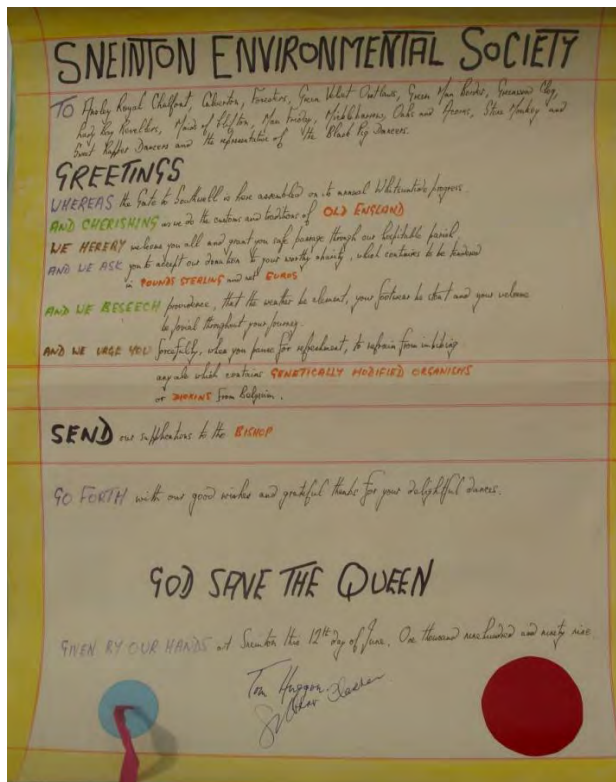 SNEINTON ENVIRONMENTAL SOCIETY
TO Ansley Royal Chalfont, Calverton, Foresters, Green Velvet Outlaws, Green Man Border, Greenwood Clog,
Rag Revellers, Maids of Clifton, Man Friday, Oaks and Acorns, Stone Monkey and
Sweet Rapper Dancers and the representative of the Black Pig Dancers.
GREETINGS
WHEREAS the Gate to Southwell is have assembled on its annual Whitsuntide progress.
AND CHERISHING as we do the customs and traditions of OLD ENGLAND
WE HEREBY welcome you all and grant you safe passage through our hospitable parish,
AND WE ASK you to accept our donation to your worthy charity, which continues to be tendered
in POUNDS STERLING and not EUROS
AND WE BESEECH providence, that the weather be clement, your footwear be stout and your welcome
be jovial throughout your journey.
AND WE URGE YOU forcefully, when you pause for refreshment, to refrain from imbibing
any ale which contains GENETICALLY MODIFIED ORGANISMS
or DIOXINS from Belgium.
SEND our supplications to the BISHOP
GO FORTH with our good wishes and grateful thanks for your delightful dances.
GOD SAVE THE QUEEN
GIVEN BY OUR HANDS at Sneinton this 12th day of June. One thousand nine hundred and ninety nine.
Tom Huggon